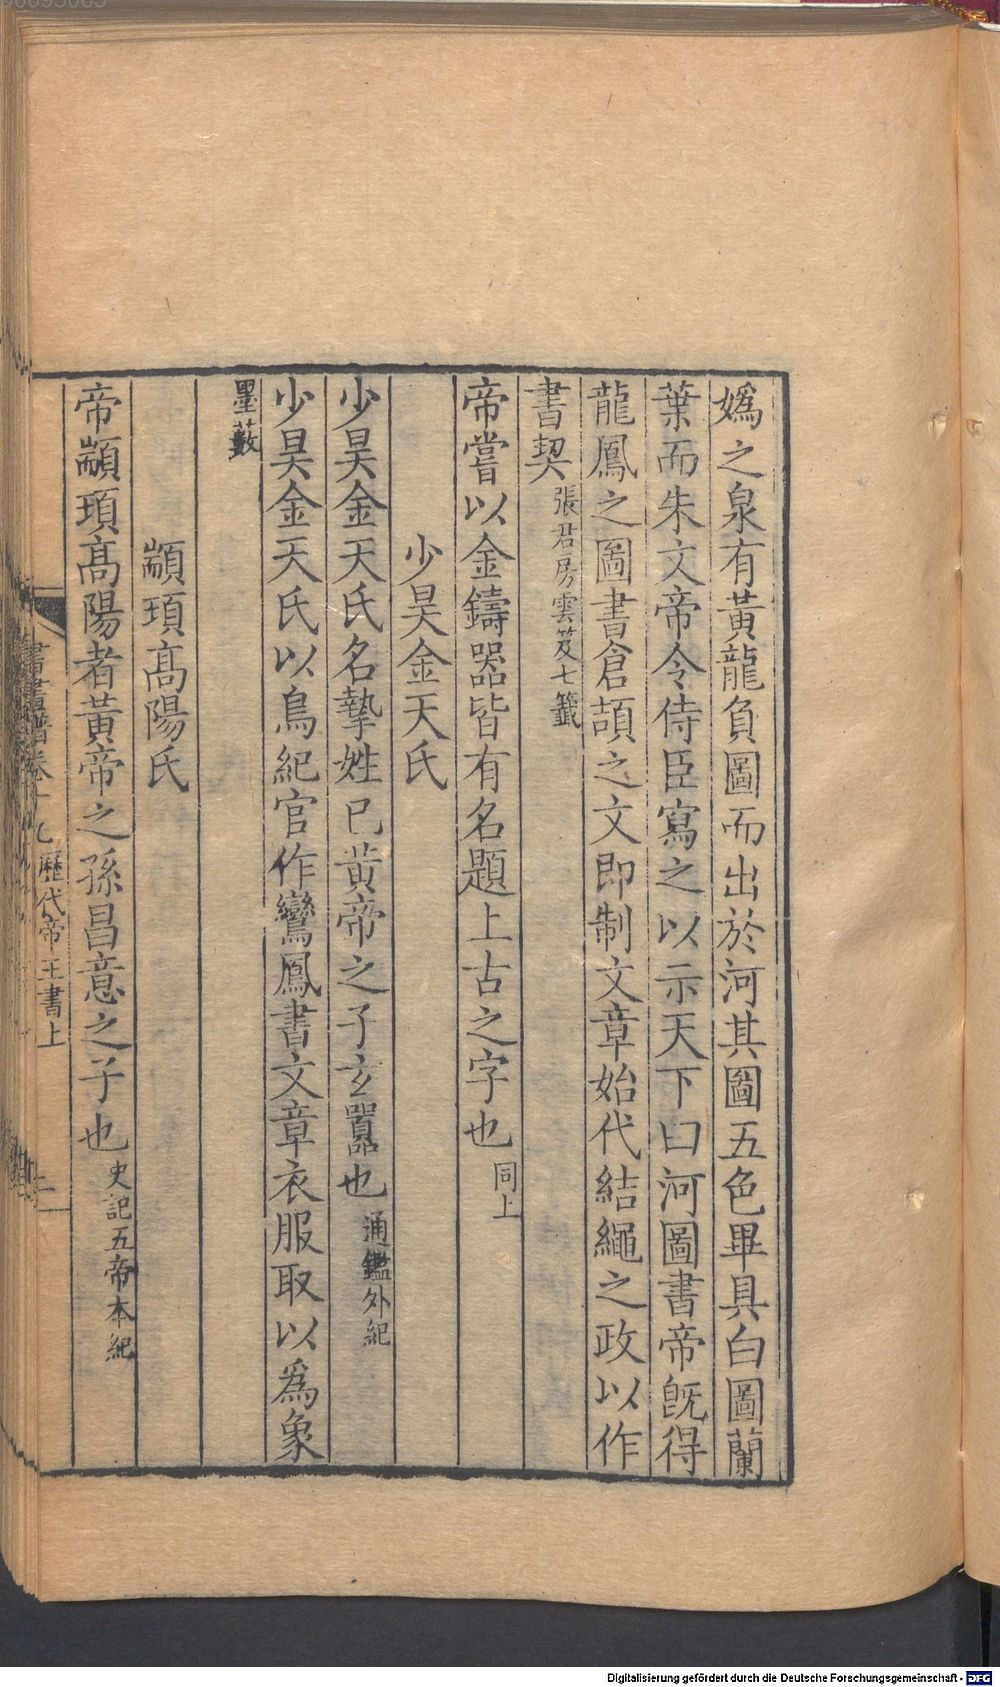 嬀之泉有黃龍負圖而出於河其圖五色畢具白圖蘭
葉而朱文帝令侍臣寫之以示天下曰河圖書帝旣得
龍鳳之圖書倉頡之文即制文章始代結繩之政以作
書契張君房雲笈七籤
帝嘗以金鑄器皆有名題上古之字也同上
少昊金天氏
少昊金天氏名摯姓已黃帝之子玄囂也通鑑外紀
少昊金天氏以鳥紀官作鸞鳳書文章衣服取以爲象
墨藪
顓頊高陽氏
帝顓頊高陽者黃帝之孫昌意之子也史記五帝本紀
書畫譜卷十九 歷代帝王書上 二
Digitalisierung gefördert durch die Deutsche Forschungsgemeinschaft - DFG